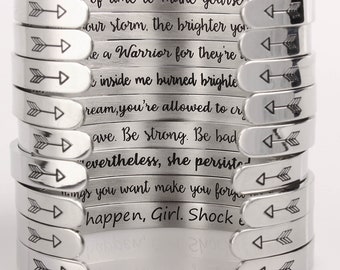 of time to make yourself
our Storm, the brighter you
like a Warrior for they're
inside me burned brighte
ream, you're allowed to cry
ave. Be strong. Be bad
Nevertheless, she persisted
ings you want make you forge
happen, Girl. Shock e